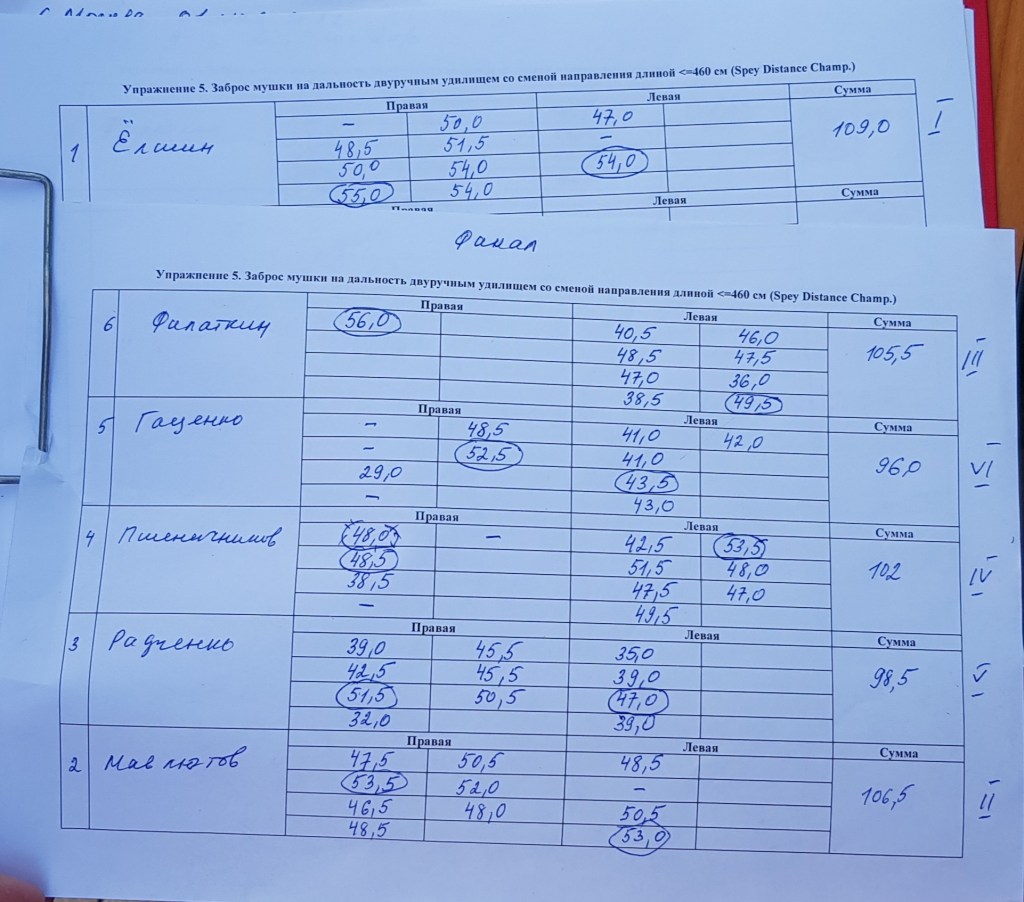 Упражнение 5. Заброс мушки на дальность двуручным удилищем со сменой направления длиной <=460 см (Spey Distance Champ.)
Правая Левая Сумма
1 Ёлшин – 50,0 47,0 109,0 I
48,5 51,5 –
50,0 54,0 54,0
55,0 54,0
Правая Левая Сумма
Финал
Упражнение 5. Заброс мушки на дальность двуручным удилищем со сменой направления длиной <=460 см (Spey Distance Champ.)
Правая Левая Сумма
6 Филаткин 56,0 40,5 46,0 105,5 III
48,5 47,5
47,0 36,0
38,5 49,5
Правая Левая Сумма
5 Гаценко – 48,5 41,0 42,0 96,0 VI
– 52,5 41,0
29,0 43,5
– 43,0
Правая Левая Сумма
4 Пшеничников 48,0 – 42,5 53,5 102 IV
48,5 51,5 48,0
38,5 47,5 47,0
– 49,5
Правая Левая Сумма
3 Радченко 39,0 45,5 35,0 98,5 V
42,5 45,5 39,0
51,5 50,5 47,0
32,0 39,0
Правая Левая Сумма
2 Мавлютов 47,5 50,5 48,5 106,5 II
53,5 52,0 –
46,5 48,0 50,5
48,5 53,0